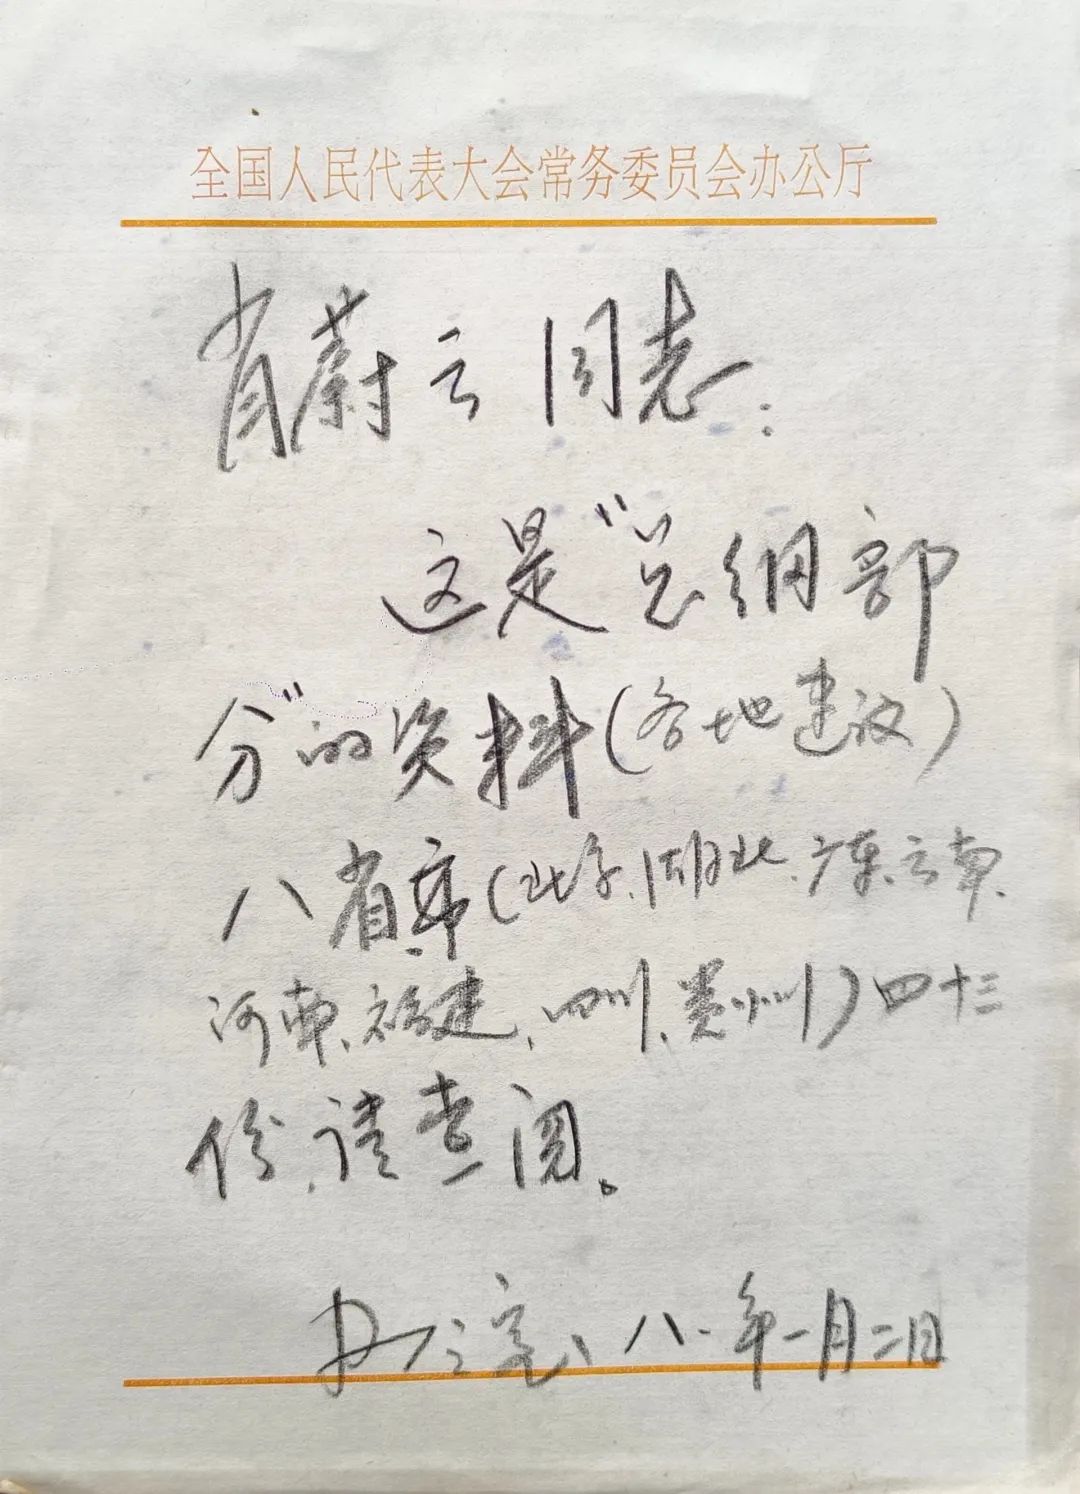 全国人民代表大会常务委员会办公厅
肖蔚云同志：
这是“总纲部
分”的资料（各地建议）
八省、市（北京、湖北、广东、云南、
河南、福建、四川、贵州）四十三
份，请查阅。
八一年一月二日